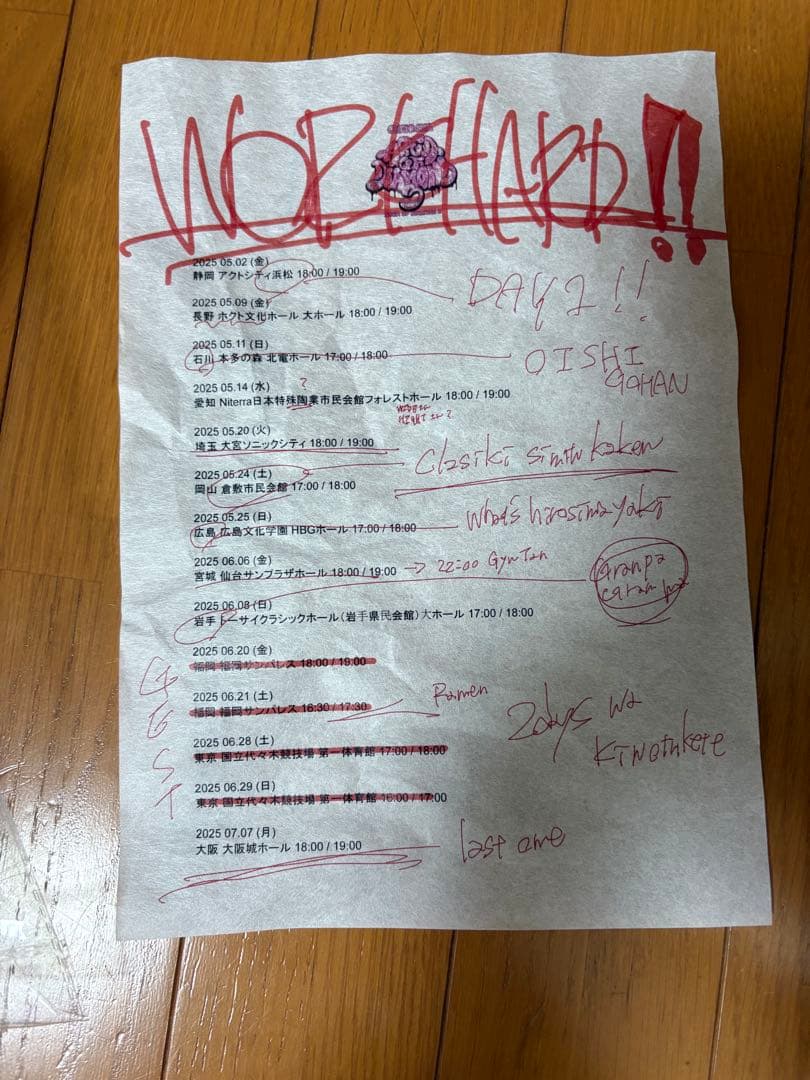 WORK HARD!!
2025 05.02 (金)
静岡 アクトシティ浜松 18:00 / 19:00
DAY 1!!
2025 05.09 (金)
長野 ホクト文化ホール 大ホール 18:00 / 19:00
2025 05.11 (日)
石川 本多の森 北電ホール 17:00 / 18:00
OISHI
GOHAN
2025 05.14 (水)
?
愛知 Niterra日本特殊陶業市民会館フォレストホール 18:00 / 19:00
2025 05.20 (火)
埼玉 大宮ソニックシティ 18:00 / 19:00
2025 05.24 (土)
岡山 倉敷市民会館 17:00 / 18:00
2025 05.25 (日)
広島 広島文化学園 HBGホール 17:00 / 18:00
what's hirosima yaki
2025 06.06 (金)
宮城 仙台サンプラザホール 18:00 / 19:00 → 22:00 Gyu Tan
2025 06.08 (日)
岩手 トーサイクラシックホール（岩手県民会館）大ホール 17:00 / 18:00
2025 06.20 (金)
福岡 福岡サンパレス 18:00 / 19:00
2025 06.21 (土)
福岡 福岡サンパレス 16:30 / 17:30
Ramen
2025 06.28 (土)
東京 国立代々木競技場 第一体育館 17:00 / 18:00
2days wa
kiwotukete
2025 06.29 (日)
東京 国立代々木競技場 第一体育館 16:00 / 17:00
2025 07.07 (月)
大阪 大阪城ホール 18:00 / 19:00
last one